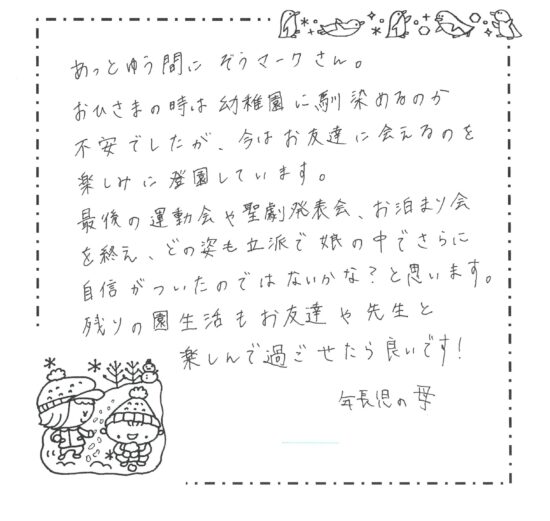 あっとゆう間に ぞうマークさん。
おひさまの時は幼稚園に馴染めるのか
不安でしたが、今はお友達に会えるのを
楽しみに登園しています。
最後の運動会や聖劇発表会、お泊まり会
を終え、どの姿も立派で娘の中でさらに
自信がついたのではないかな？と思います。
残りの園生活もお友達や先生と
楽しんで過ごせたら良いです！
年長児の母